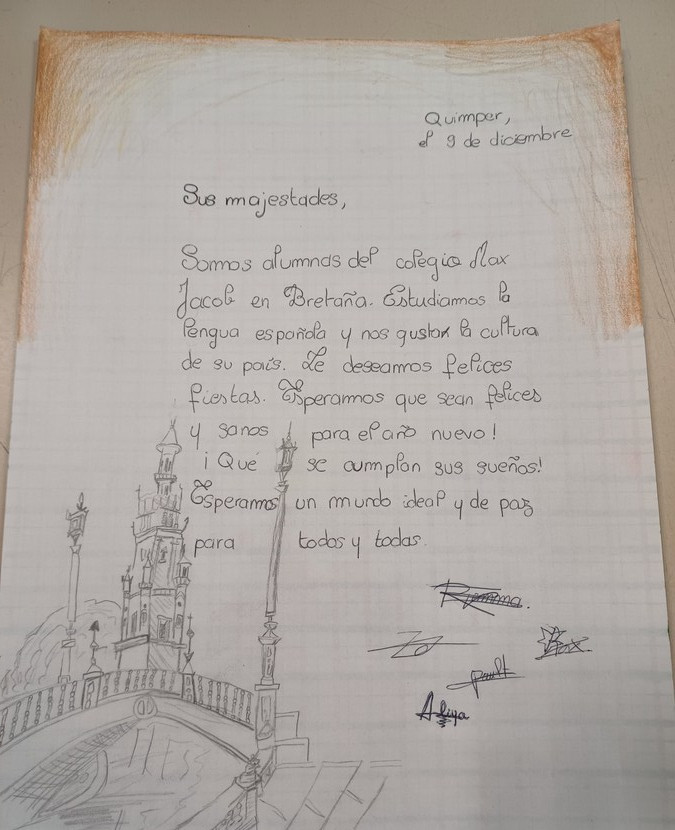 Quimper,
el 9 de diciembre
Sus majestades,
Somos alumnas del colegio Max
Jacob en Bretaña. Estudiamos la
lengua española y nos gustan la cultura
de su país. Le deseamos felices
fiestas. Esperamos que sean felices
y sanos para el año nuevo!
¡Qué se cumplan sus sueños!
Esperamos un mundo ideal y de paz
para todos y todas.
Aliya